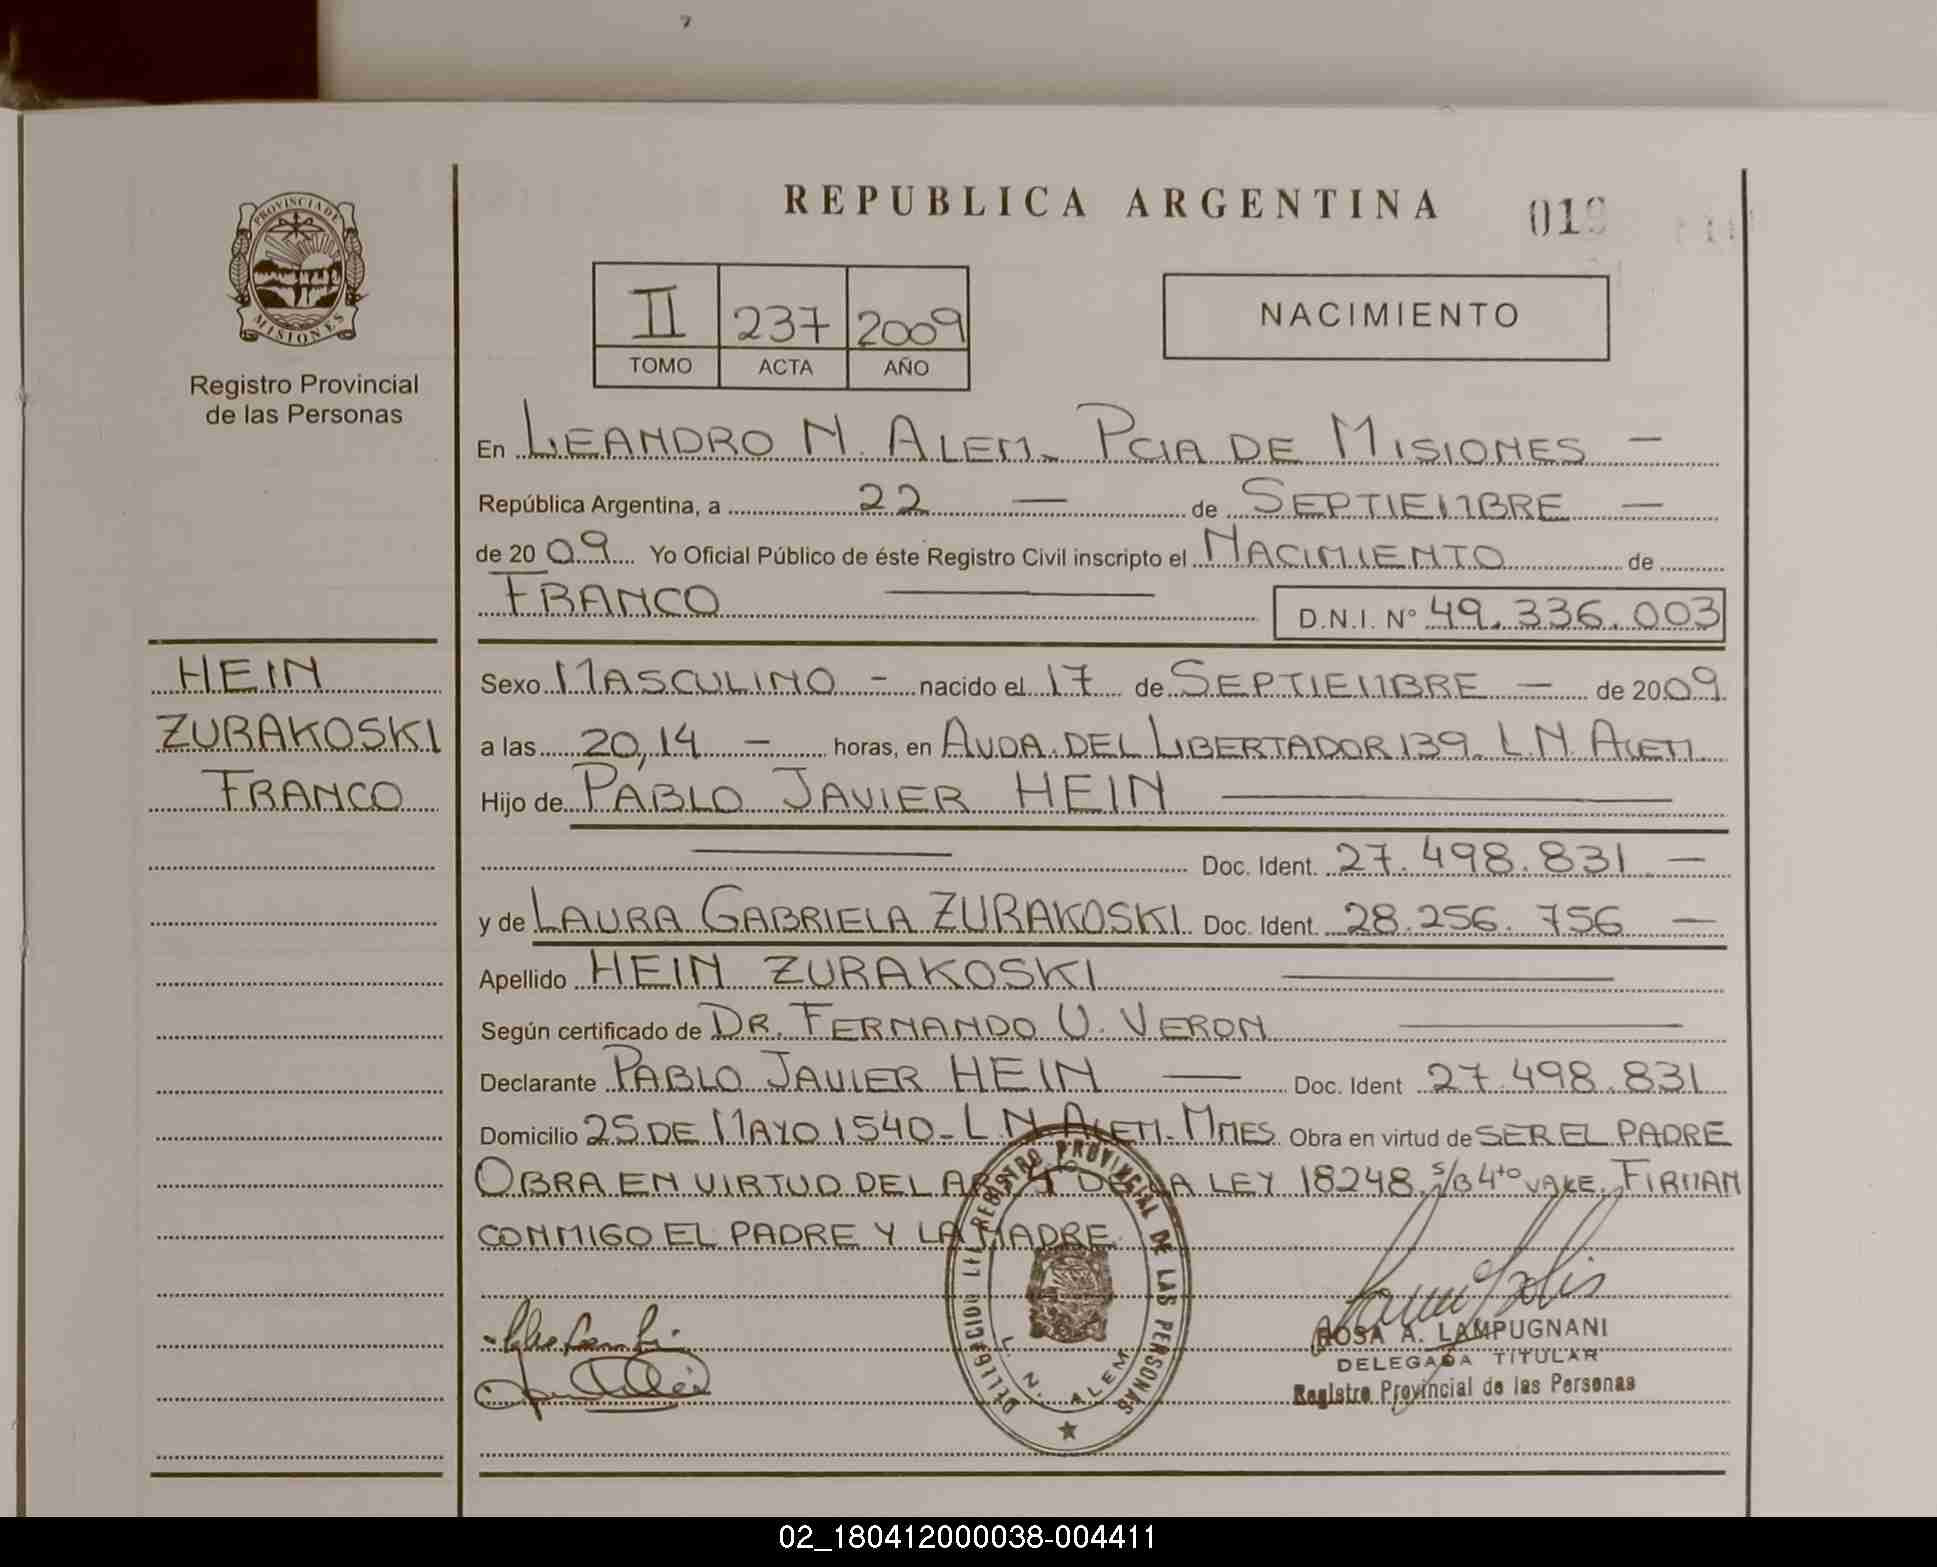 REPUBLICA ARGENTINA
PROVINCIA DE
MISIONES
Registro Provincial
de las Personas
II 237 2009
TOMO ACTA AÑO
NACIMIENTO
En LEANDRO N. ALEM. PCIA DE MISIONES —
República Argentina, a 22 — de SEPTIEMBRE —
de 20 09 Yo Oficial Público de éste Registro Civil inscripto el NACIMIENTO de
FRANCO — D.N.I. N° 49.336.003
HEIN
ZURAKOSKI
FRANCO
Sexo MASCULINO - nacido el 17 de SEPTIEMBRE — de 2009
a las 20,14 — horas, en AVDA. DEL LIBERTADOR 139. L.N. ALEM.
Hijo de PABLO JAVIER HEIN —
— Doc. Ident. 27.498.831 —
y de LAURA GABRIELA ZURAKOSKI Doc. Ident. 28.256.756 —
Apellido HEIN ZURAKOSKI —
Según certificado de DR. FERNANDO U. VERON —
Declarante PABLO JAVIER HEIN — Doc. Ident 27.498.831
Domicilio 25 DE MAYO 1540 - L.N. ALEM - MNES. Obra en virtud de SER EL PADRE
OBRA EN VIRTUD DEL ART. 4° DE LA LEY 18248. S/B 4to VALE. FIRMAN
CONMIGO EL PADRE Y LA MADRE
REGISTRO PROVINCIAL DE LAS PERSONAS
L. N. ALEM
ROSA A. LAMPUGNANI
DELEGADA TITULAR
Registro Provincial de las Personas
02_180412000038-004411